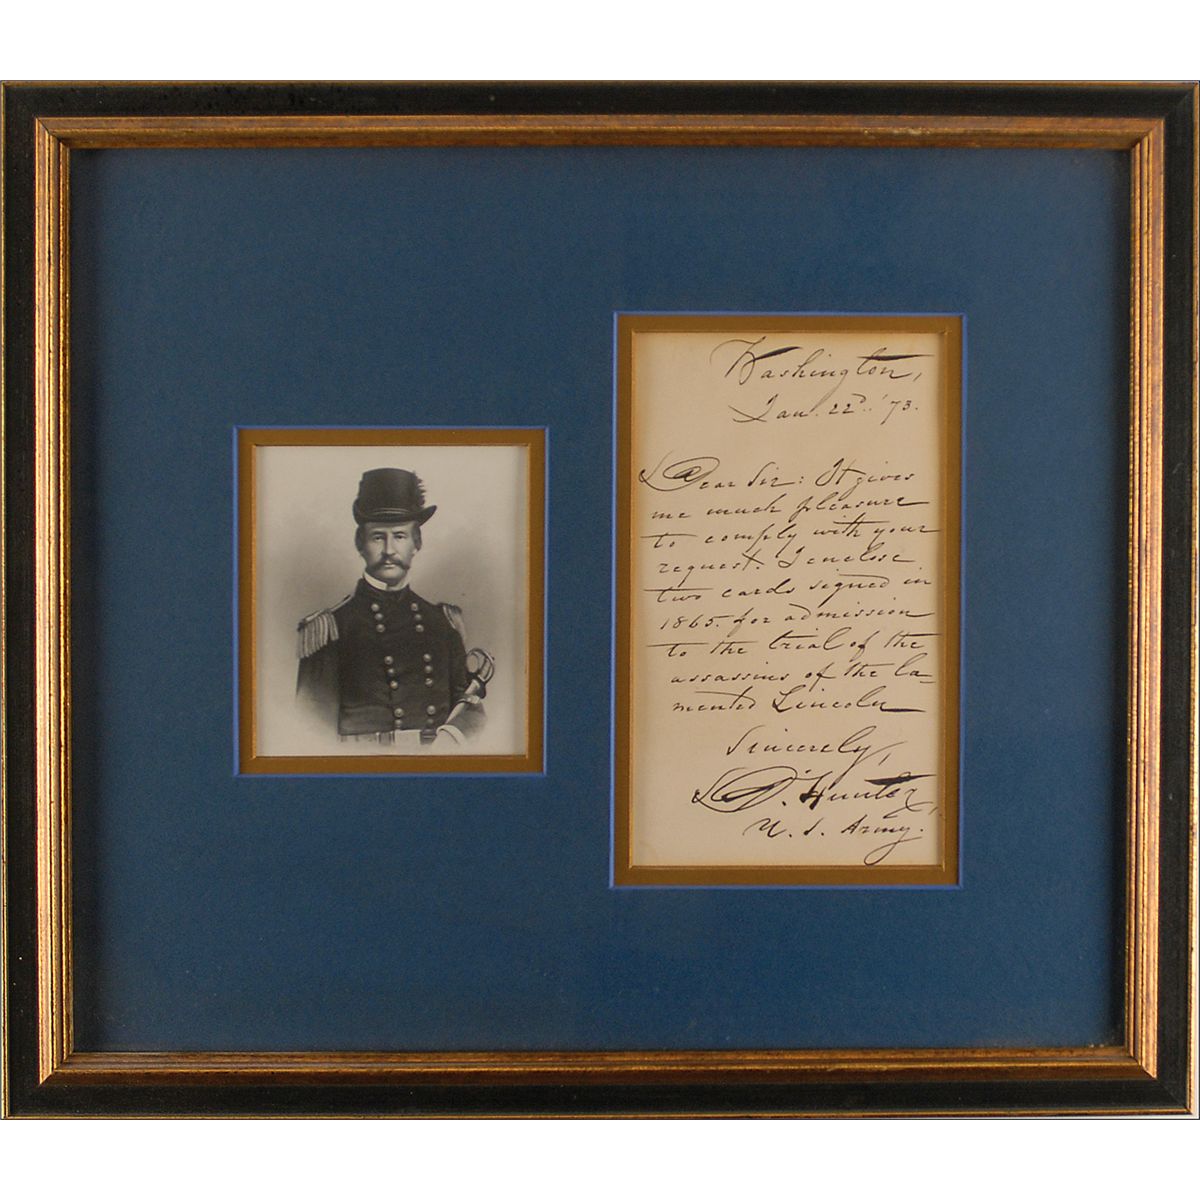 Washington,
Jan. 22d. '73.
Dear Sir: It gives
me much pleasure
to comply with your
request. I enclose
two cards signed in
1865. for admission
to the trial of the
assassins of the la-
mented Lincoln
Sincerely,
D. Hunter,
U. S. Army.